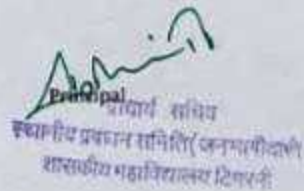 Principal
प्राचार्य सचिव
स्थानीय प्रबंधन समिति(जनभागीदारी)
शासकीय महाविद्यालय टिमरनी